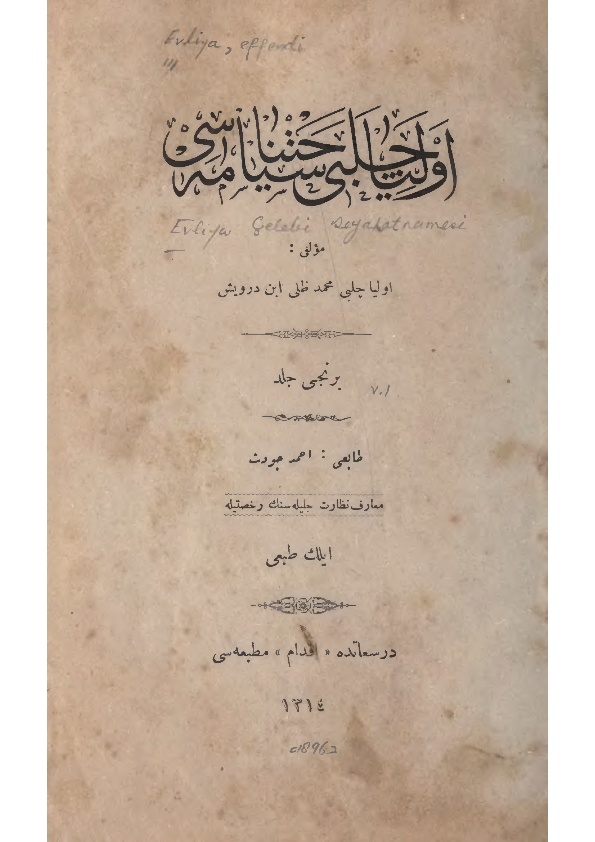 Evliya, effendi
اوليا چلبى سياحتنامه‌سى
Evliya Çelebi Seyahatnamesi
مؤلفى :
اوليا چلبى محمد ظلى ابن درويش
برنجى جلد
v.1
طابعى : احمد جودت
معارف نظارت جليله‌سنك رخصتيله
ايلك طبعى
درسعادتده « اقدام » مطبعه‌سى
١٣١٤
c1896ɔ